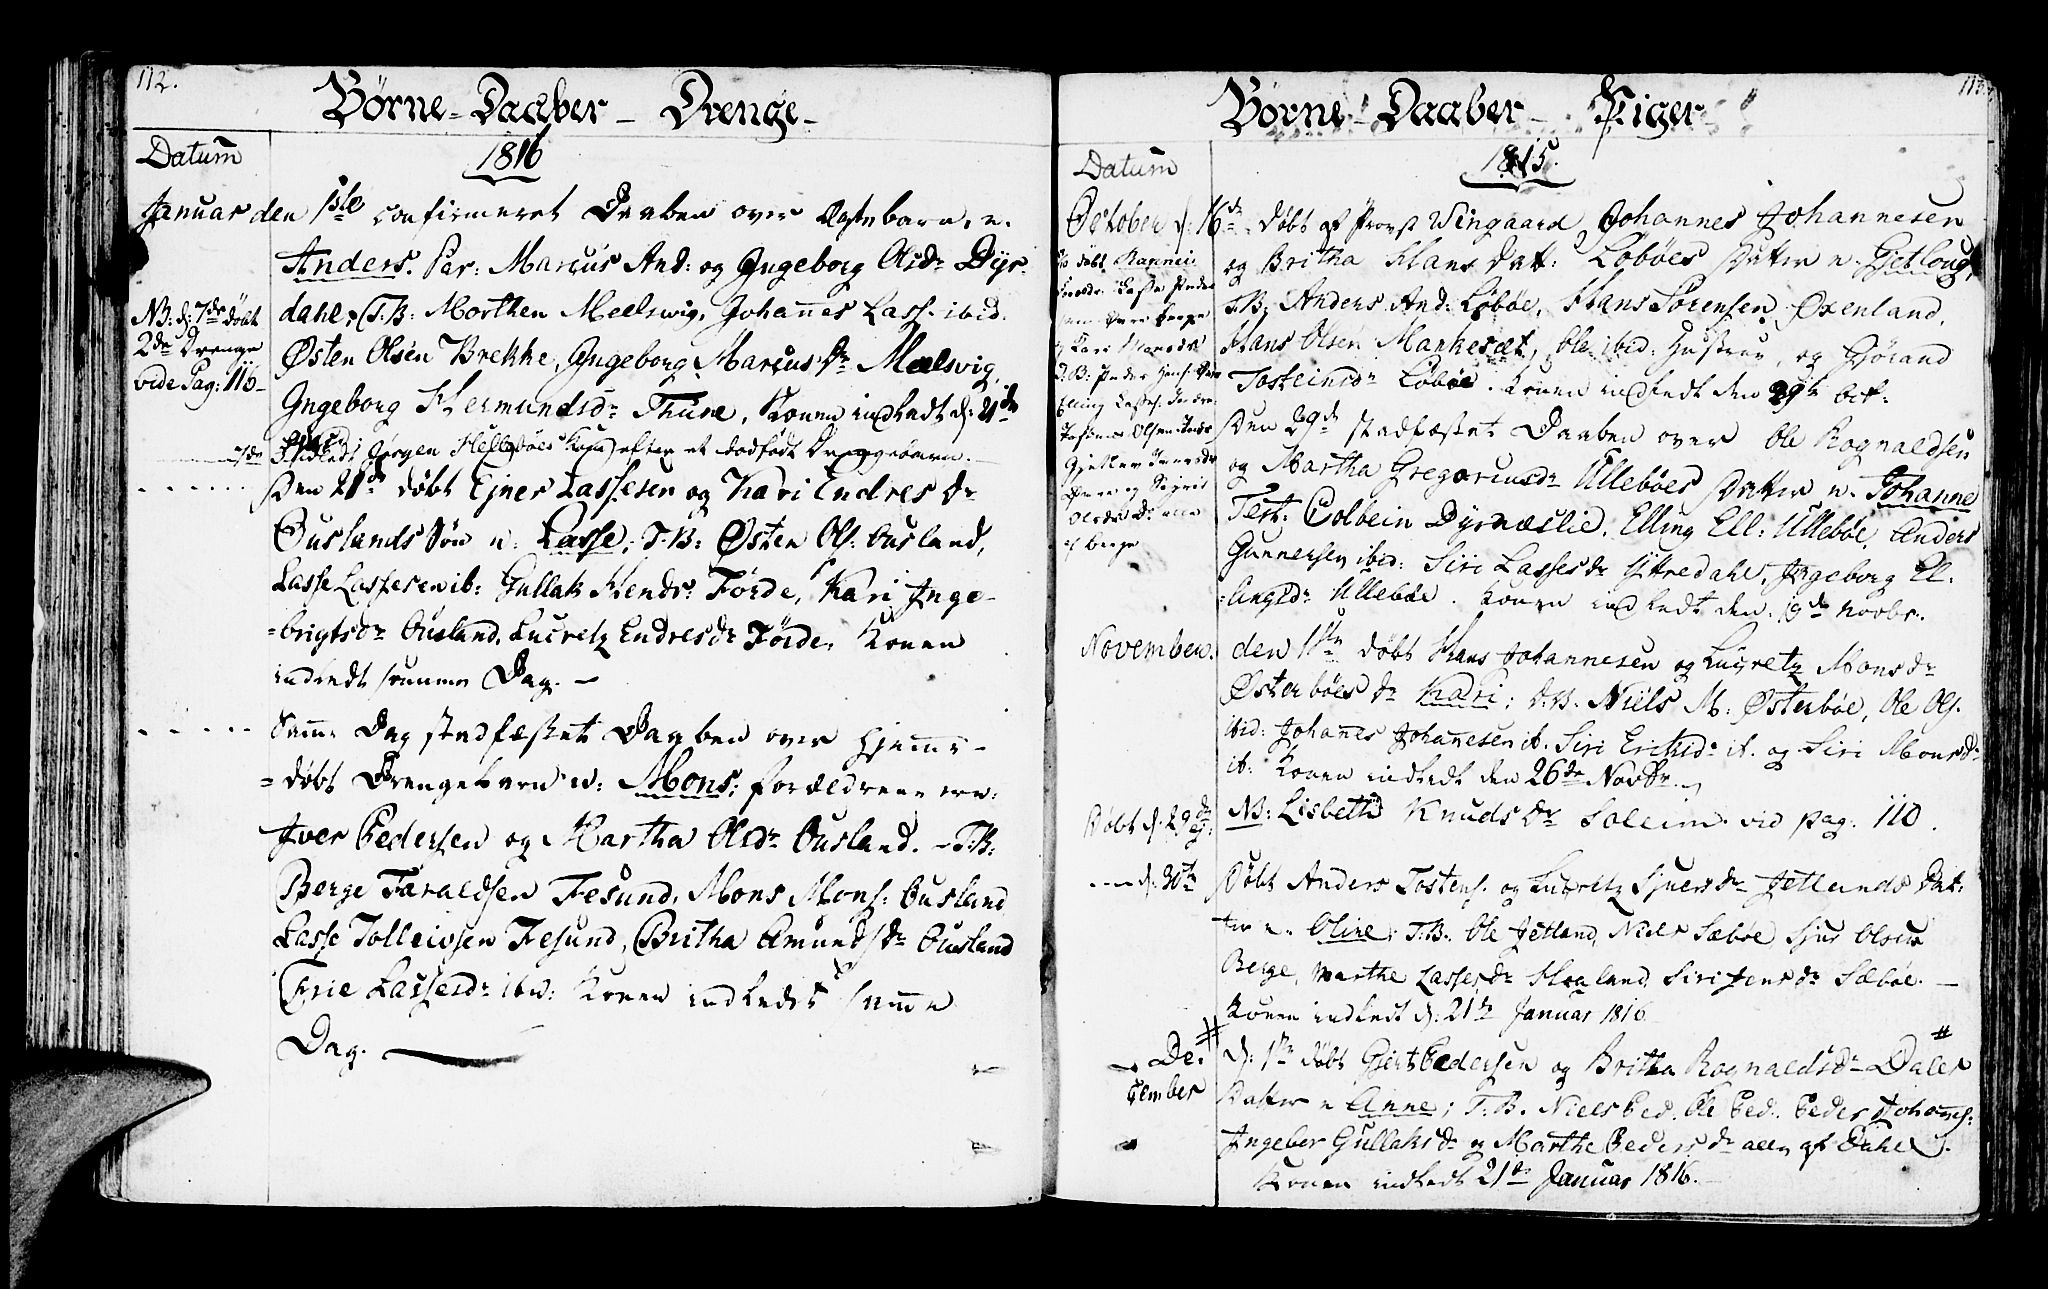 112.
Børne-Daaber - Drenge-
Datum
1816
Januar den 1ste confirmeret Daaben over barn, n.
Anders. Par: Marcus And: og Ingeborg Olsdr Dyr-
dahl, T:B: Morthen Meelsvig, Johannes Lass. ibid.
Østen Olsen Brekke, Ingeborg Marcusdr Mælsvig
Ingeborg Hermundsdr Thune, Konen indledt d: 21de
NB: d: 7de døbt
2de Drenge
vide Pag: 116-
Indledt Jørgen Hellebøes Kone efter et dødfødt Drengebarn.
Den 21de døbt Ejner Lassesen og Kari Endresdr
Ouslands Søn n: Lasse; T:B: Østen Ols. Ousland,
Lasse Lassesen ib: Gullak Hendr: Førde, Kari Inge-
=brigtsdr Ousland, Lucretz Endresdr Førde, Konen
indledt samme Dag. -
Samme Dag stadfæstet Daaben over hjemme-
=døbt Drengebarn n: Mons; forældrene ere:
Iver Pedersen og Martha Olsdr Ousland. - T:B:
Berge Taraldsen Fesund, Mons Mons: Ousland
Lasse Tolleivsen Fesund, Britha Amundsdr Ousland
Lassesdr ibid: Konen indledt samme
Dag.
113.
Børne-Daaber- Piger-
Datum
1815.
October d: 16de døbt af Provst Wingaard, Johannes Johannesen
og Britha Hansdatt: Løbøes Datter n. Gjetloug
T:B: Anders And: Løbøe, Hans Sørensen Øxenland,
Hans Olsen Mankesæt, Ole ibid: Hustrue, og Gjørand
Tosteinsdr Løbøe. Konen indledt den 29de oct:
Den 29de stadfæstet Daaben over Ole Rognaldsen
og Martha Gregoriusdr Ullebøes Datter n. Johanne
Test: Colbein Dyrnæslie, Elling Ell: Ullebøe, Anders
Gunnersen ibid: Siri Lassesdr Yttredahl, Ingeborg El-
=lingsdr Ullebøe. Konen indledt den 19de Novbr.
døbt Rannei
og Kari Monsdr
Olsen
og Sigrid
Olsdr alle
af Berge
November. den 1ste døbt Hans Johannesen og Lucretz Monsdr
Østerbøes dr Kari; T:B. Niels M: Østerbøe, Ole Ols.
ibid: Johanes Johanesen ib. Siri Erichsdr ib. og Siri Monsdr
ib: Konen indledt den 26de Novbr.
Døbt d: 29de NB: Lisbeth Knudsdr Soleim vid pag: 110.
d: 30te Døbt Anders Tostens: og Lucretz Sjursdr Jetlands Dat-
ter n. Oline; T:B: Ole Jetland, Niels Sæbøe Sjur Olsen
Berge, Marthe Lassesdr Haaland, Siri Jensdr Sæbøe. -
Konen indledt d: 21de Januar 1816
De-
cember
d: 1ste døbt Gjert Pedersen og Britha Rognaldsdr Dales
Datter n Anne; T:B. Niels Ped. Ole Ped: Peder Johans:
Ingeber Gullaksdr og Marthe Pedersdr alle af Dahle.
Konen indledt 21de Januar 1816.